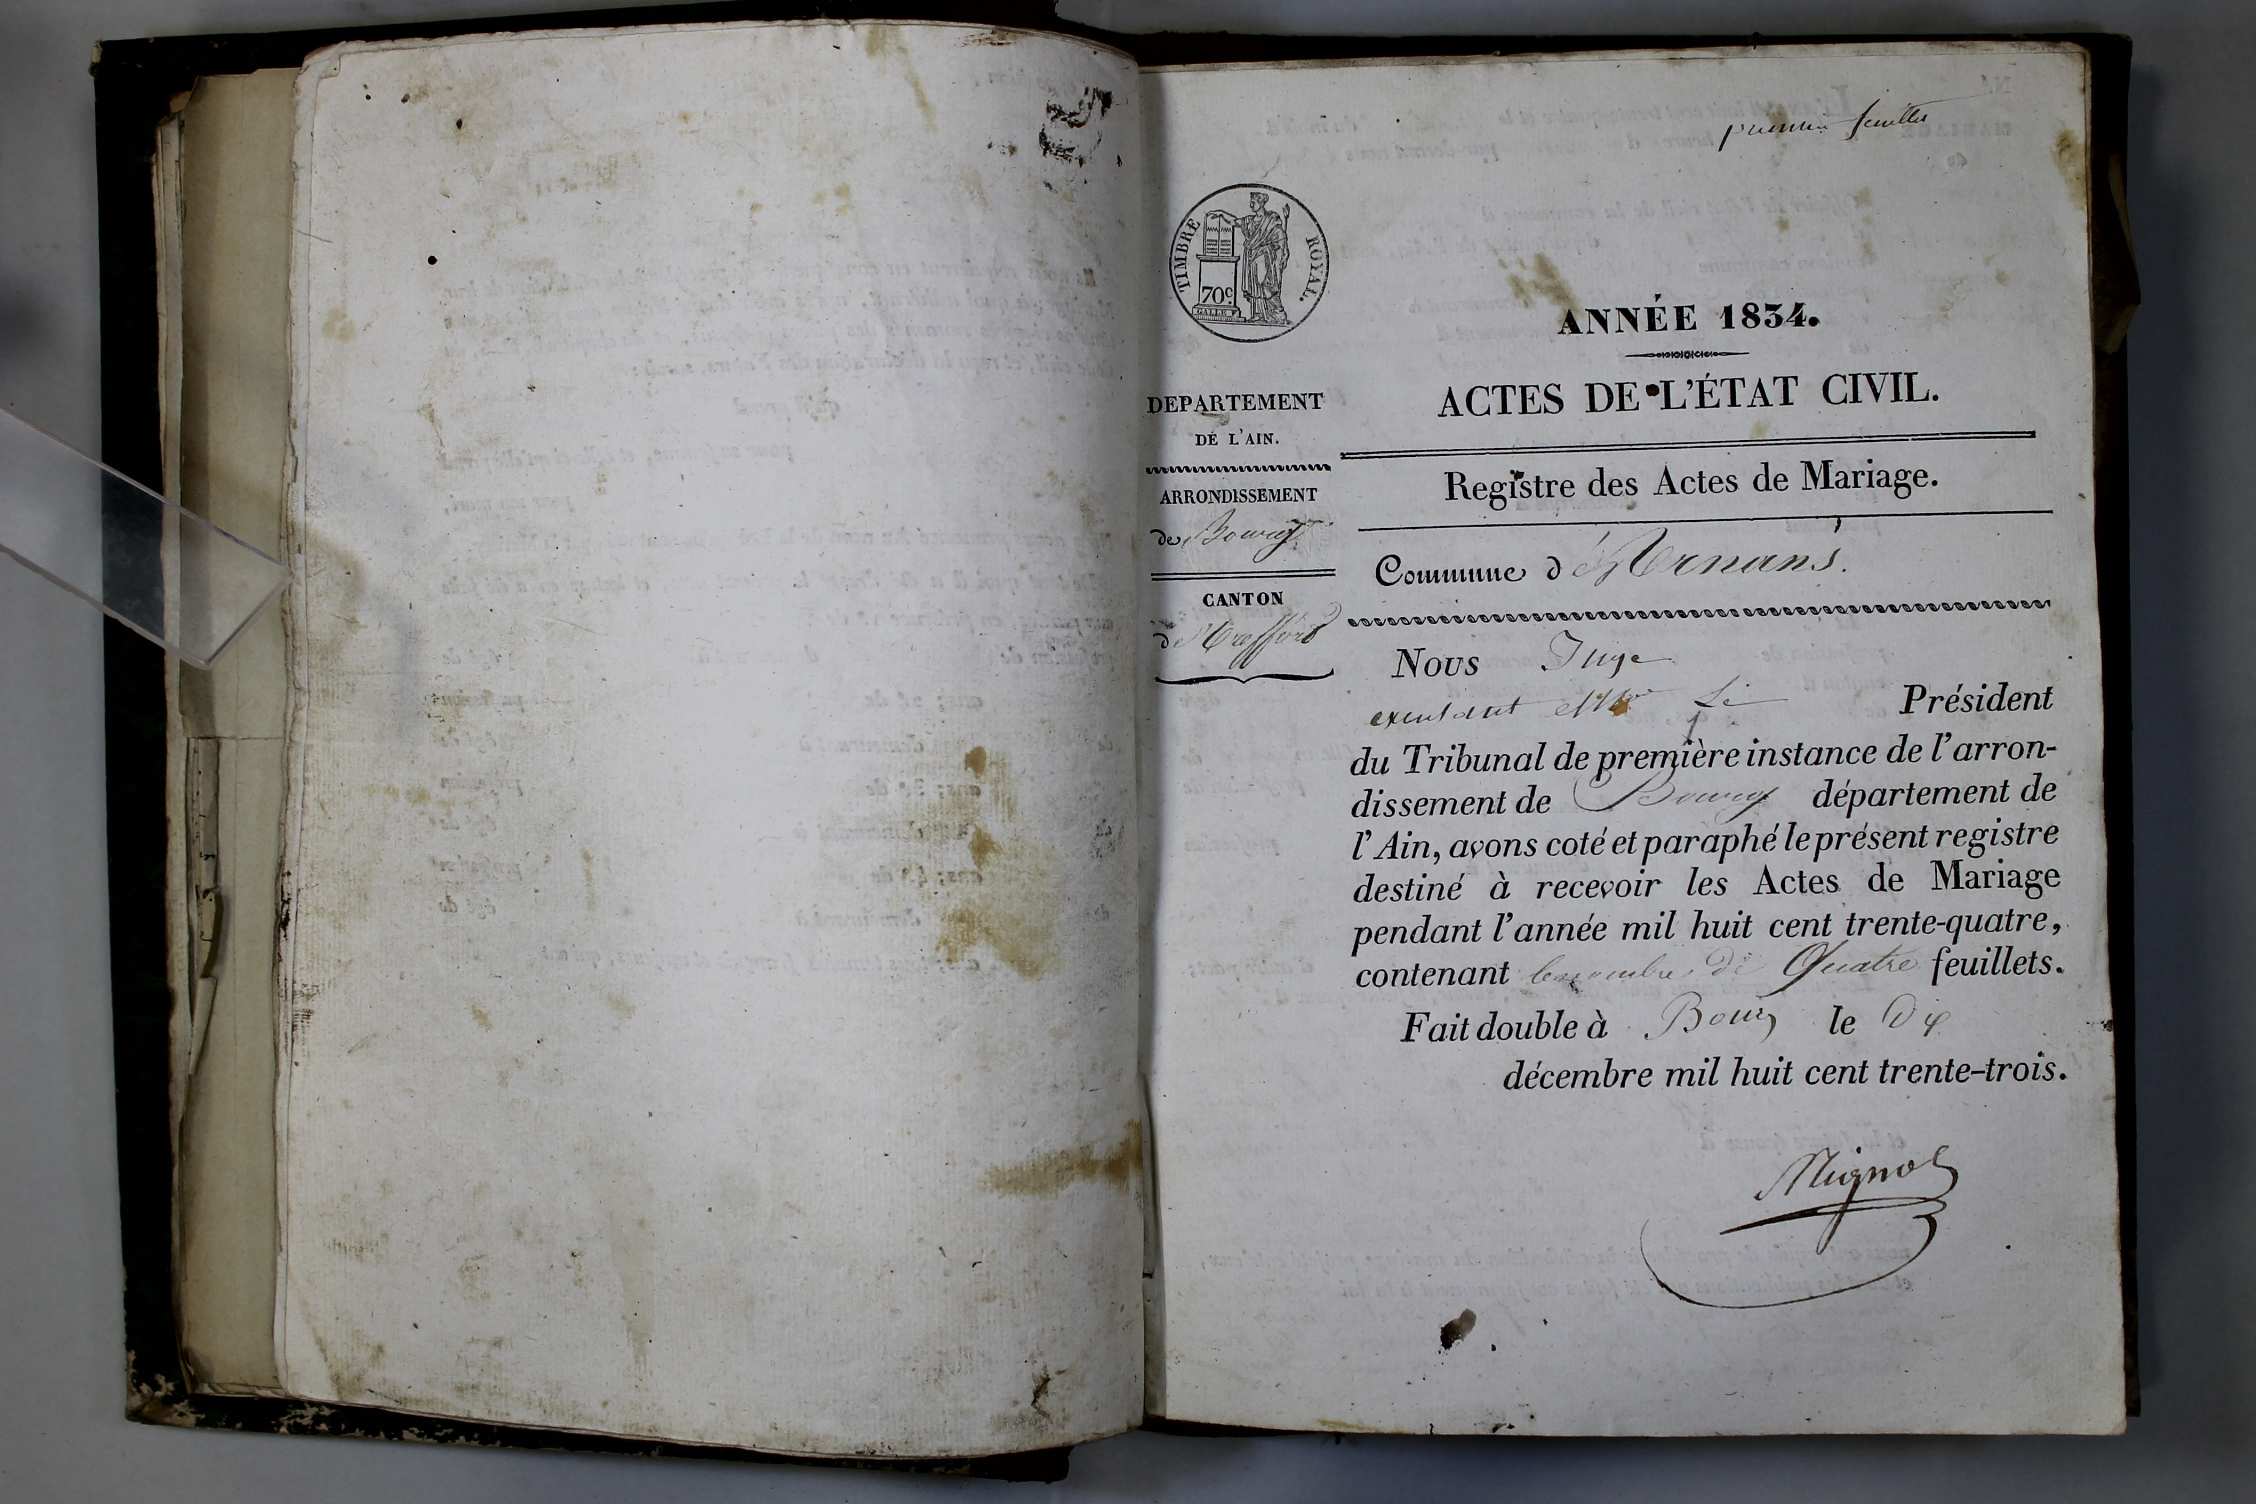 premier feuillet
TIMBRE ROYAL.
70c
GALLE F.
ANNÉE 1834.
ACTES DE L'ÉTAT CIVIL.
Registre des Actes de Mariage.
Commune d'Arnans.
DEPARTEMENT
DE L'AIN.
ARRONDISSEMENT
de Bourg
CANTON
de Treffort
Nous Juge
Président
du Tribunal de première instance de l'arron-
dissement de Bourg département de
l'Ain, avons coté et paraphé le présent registre
destiné à recevoir les Actes de Mariage
pendant l'année mil huit cent trente-quatre,
contenant le nombre de Quatre feuillets.
Fait double à Bourg le Dix
décembre mil huit cent trente-trois.